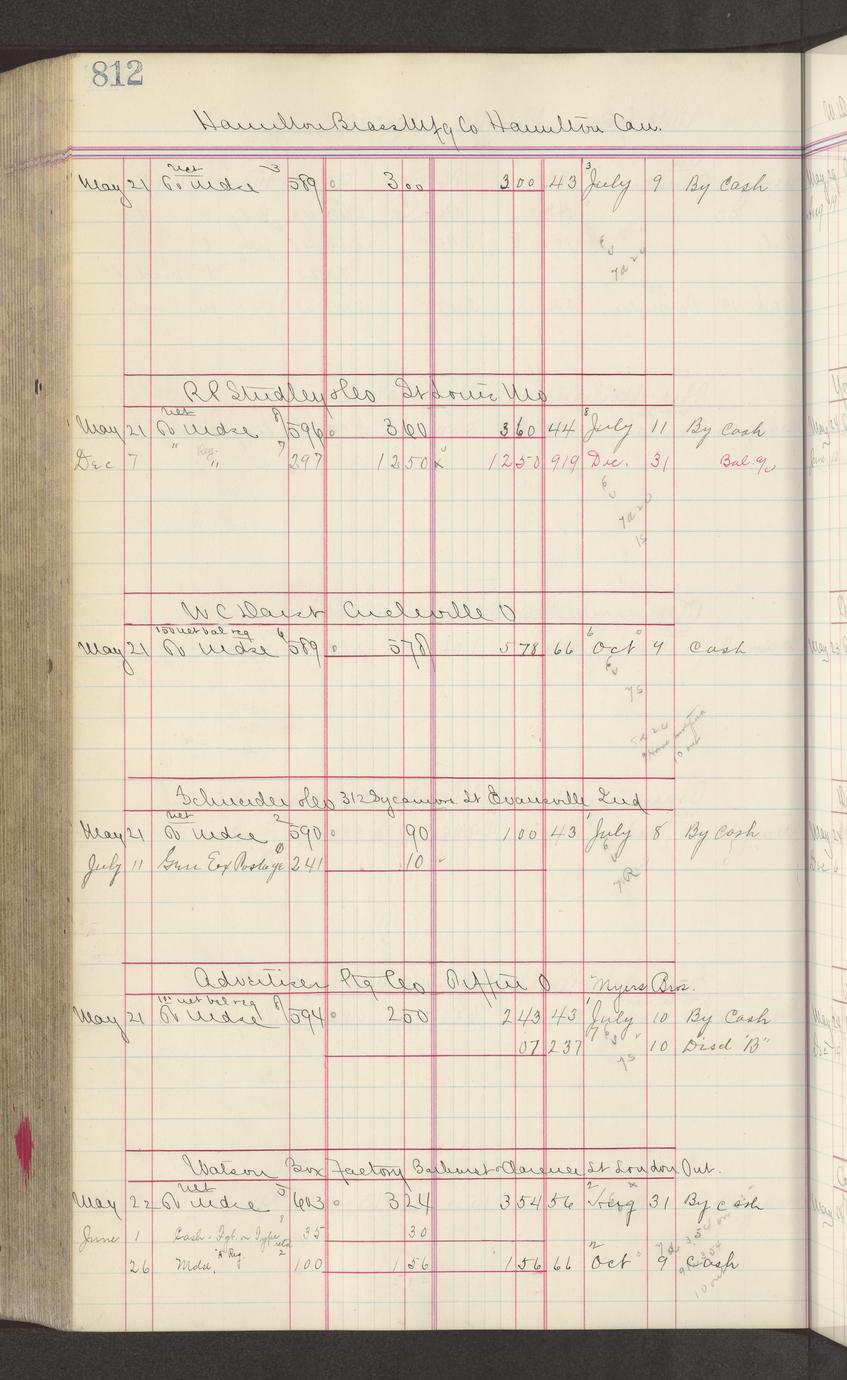 812
Hamilton Brass Mfg Co Hamilton Can.
net 3 3
May 21 To Mdse 589 0 3 00 3 00 43 July 9 By Cash
7a 2c
R P Studley & Co St Louis Mo
net 8 8
May 21 To Mdse 596 0 3 60 3 60 44 July 11 By Cash
Dec 7 " " 7 297 12 50 x 12 50 919 Dec. 31 Bal. a/c
7a 2c
1s
W C Darst Circleville O
150 net bal reg 6 6
May 21 To Mdse 589 0 5 78 5 78 66 Oct 4 Cash
7s
10 net
Schneider & Co 312 Sycamore St Evansville Ind
net 2 1
May 21 To Mdse 590 0 90 1 00 43 July 8 By Cash
July 11 Gen Ex Postage 241 10
7R
Advertiser Ptg Co Tiffin O Myers Bros.
100 net bal reg 8 1
May 21 To Mdse 594 0 2 50 2 43 43 July 10 By Cash
07 237 7 10 Disct "B"
7s
Watson Box Factory Bathurst & Clarence St London Ont.
net 5 2 x
May 22 To Mdse 603 0 3 24 3 54 56 Aug 31 By Cash
June 1 Cash - Fgt. on Type 35 30
26 Mdse, "A" Reg. 2 100 1 56 1 56 66 2 Oct 9 Cash
10 net